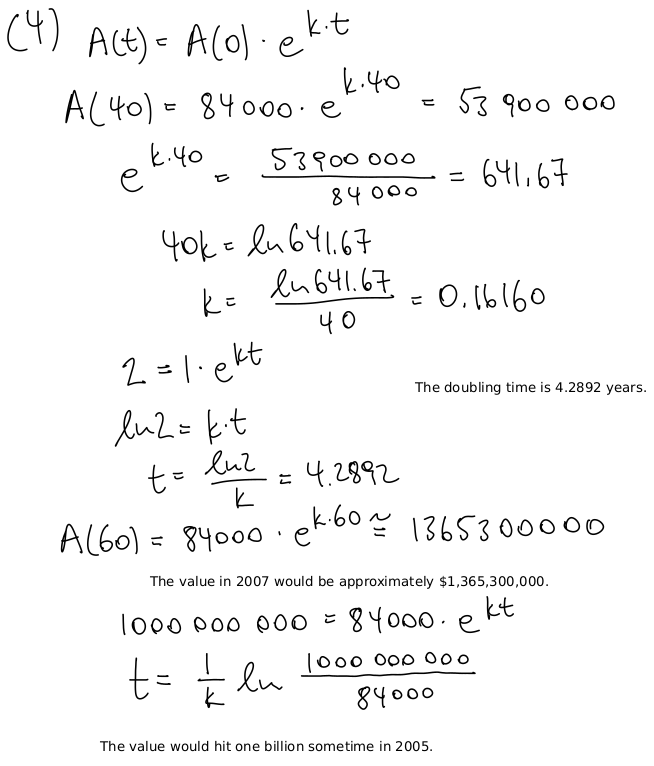 (4) A(t) = A(0) · e^{k·t}
A(40) = 84000 · e^{k·40} = 53 900 000
e^{k·40} = 53900 000 / 84 000 = 641,67
40k = ln 641.67
k = ln 641.67 / 40 = 0.16160
2 = 1 · e^{kt}
The doubling time is 4.2892 years.
ln2 = k·t
t = ln2 / k = 4.2892
A(60) = 84000 · e^{k·60} ≅ 1365300000
The value in 2007 would be approximately $1,365,300,000.
1000 000 000 = 84000 · e^{kt}
t = 1/k ln 1000 000 000 / 84000
The value would hit one billion sometime in 2005.